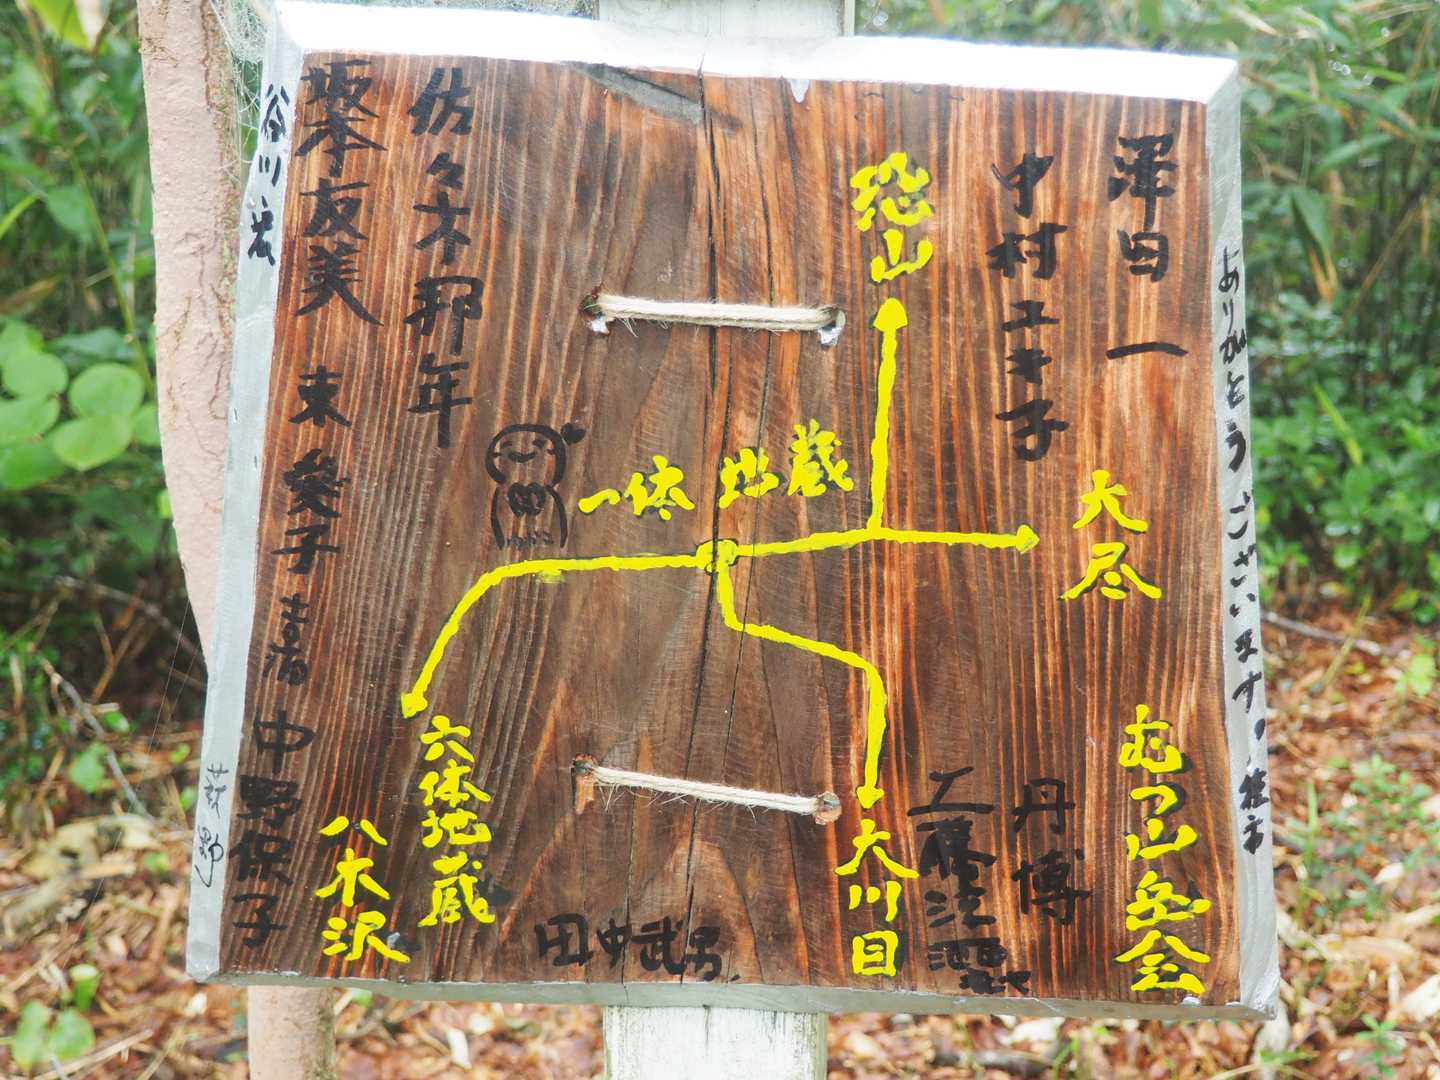 ありがとうございます。
澤田一
中村エキ子
恐山
大尽
むつ山岳会
丹博
工藤
一体地蔵
大川目
佐々木邦年
六体地蔵
八木沢
田中武男
坂本友美
東 愛子
中野保子
谷川
萩野